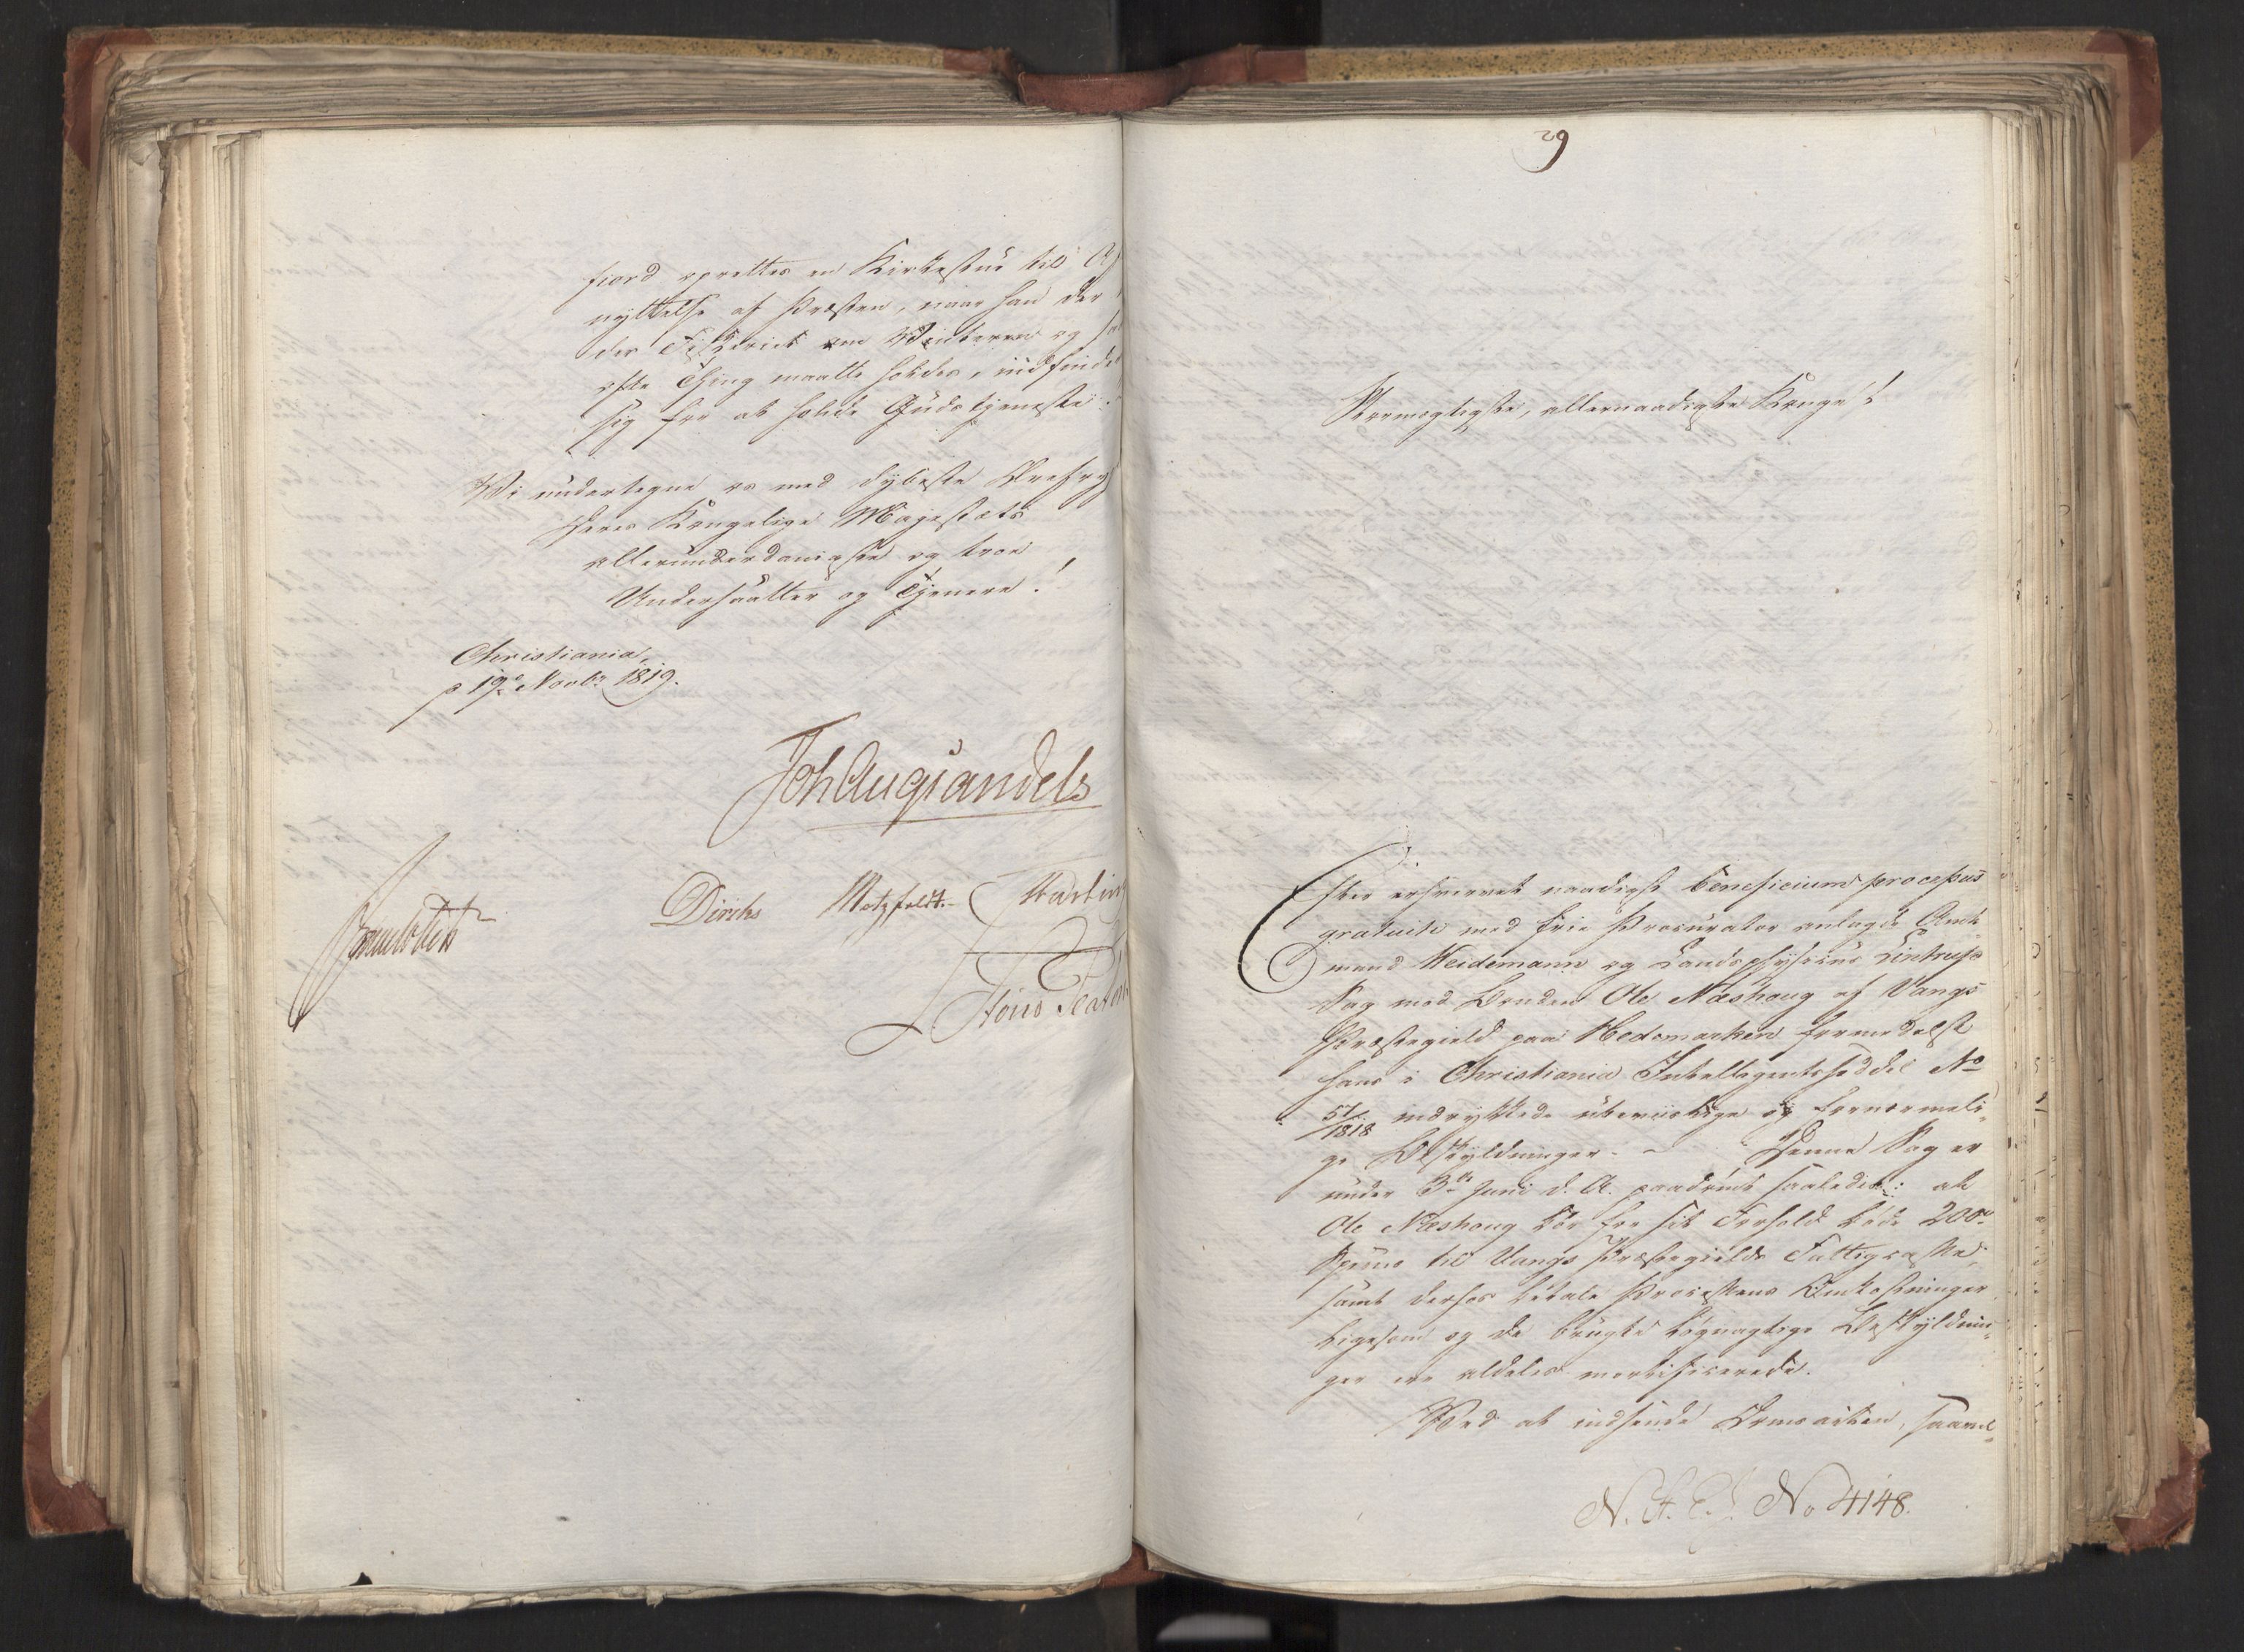 fiord oprettes en Kirkestue til
nyttelse af Præsten, naar han der
des Fiskeriet om Vinteren og
ofte Thing maatte holdes, indfinder
sig for at holde Gudstjeneste.
Vi undertegne os med dybeste
Deres Kongelige Majestæts
allerunderdanigste og troe
Undersaatter og Tjenere!
Christiania,
d 19de Novbr 1819.
JohAugSandels
Sommerhielm
Diriks Motzfeldt.
29
Stormægtigste, allernaadigste Konge!
Efter erhvervet naadigst beneficium processus
gratuiti med frie Procurator anlagde Amt-
mand Weidemann og Landphysicus
Sag mod Bonden Ole Næshoug af Vangs
Præstegield paa Hedemarken formedelst
hans i Christiania Intelligentsseddel No
51/1818 indrykkede ubeviislige og fornærmeli-
ge Beskyldninger. - Denne Sag er
under 3de Juni d. A. paadømt saaledes: at
Ole Næshoug bør for sit Forhold bøde 200
Species til Vangs Præstegields Fattigcasse,
samt derhos betale Processens Omkostninger
ligesom og de brugte løgnagtige Beskyldnin-
ger ere aldeles mortificerede.
Ved at indsende Domsacten, saavel
No 4148.